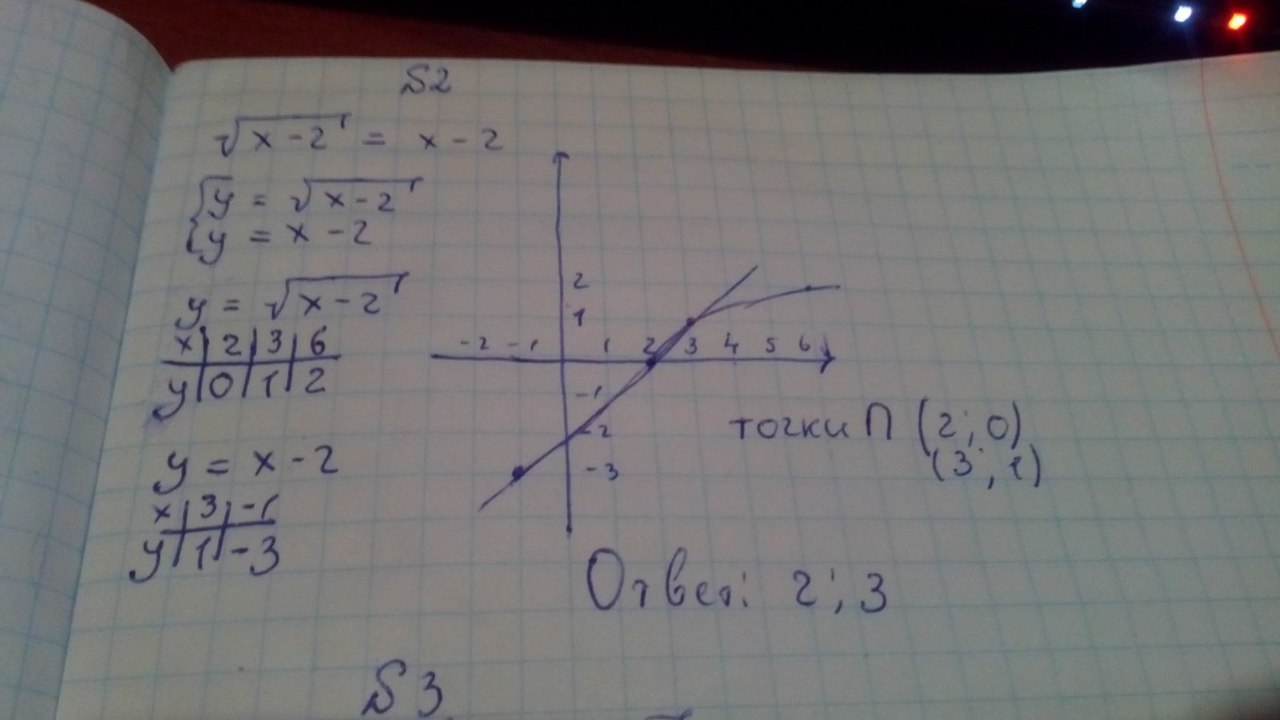 S2
√x-2 = x-2
{y = √x-2
{y = x-2
y = √x-2
x | 2 | 3 | 6
y | 0 | 1 | 2
y = x-2
x | 3 | -1
y | 1 | -3
2
1
-2 -1 1 2 3 4 5 6
-1
-2
-3
точки П (2; 0)
(3; 1)
Ответ: 2; 3
S3